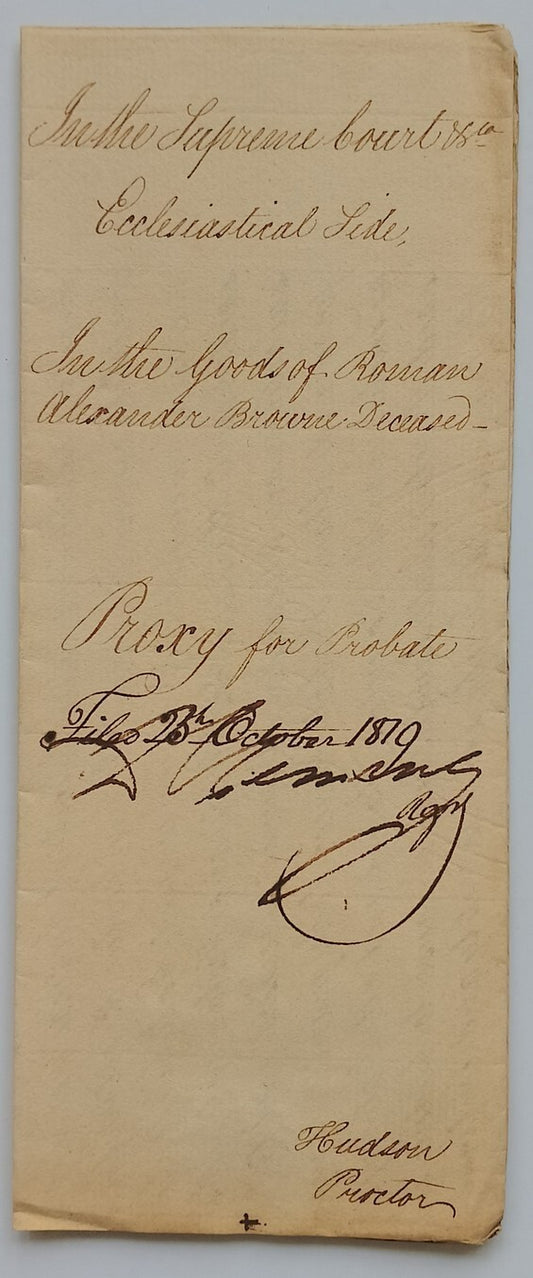 In the Supreme Court &ca
Ecclesiastical Side,
In the Goods of Roman
Alexander Browne Deceased-
Proxy for Probate
Filed October
Regr
Hudson
Proctor